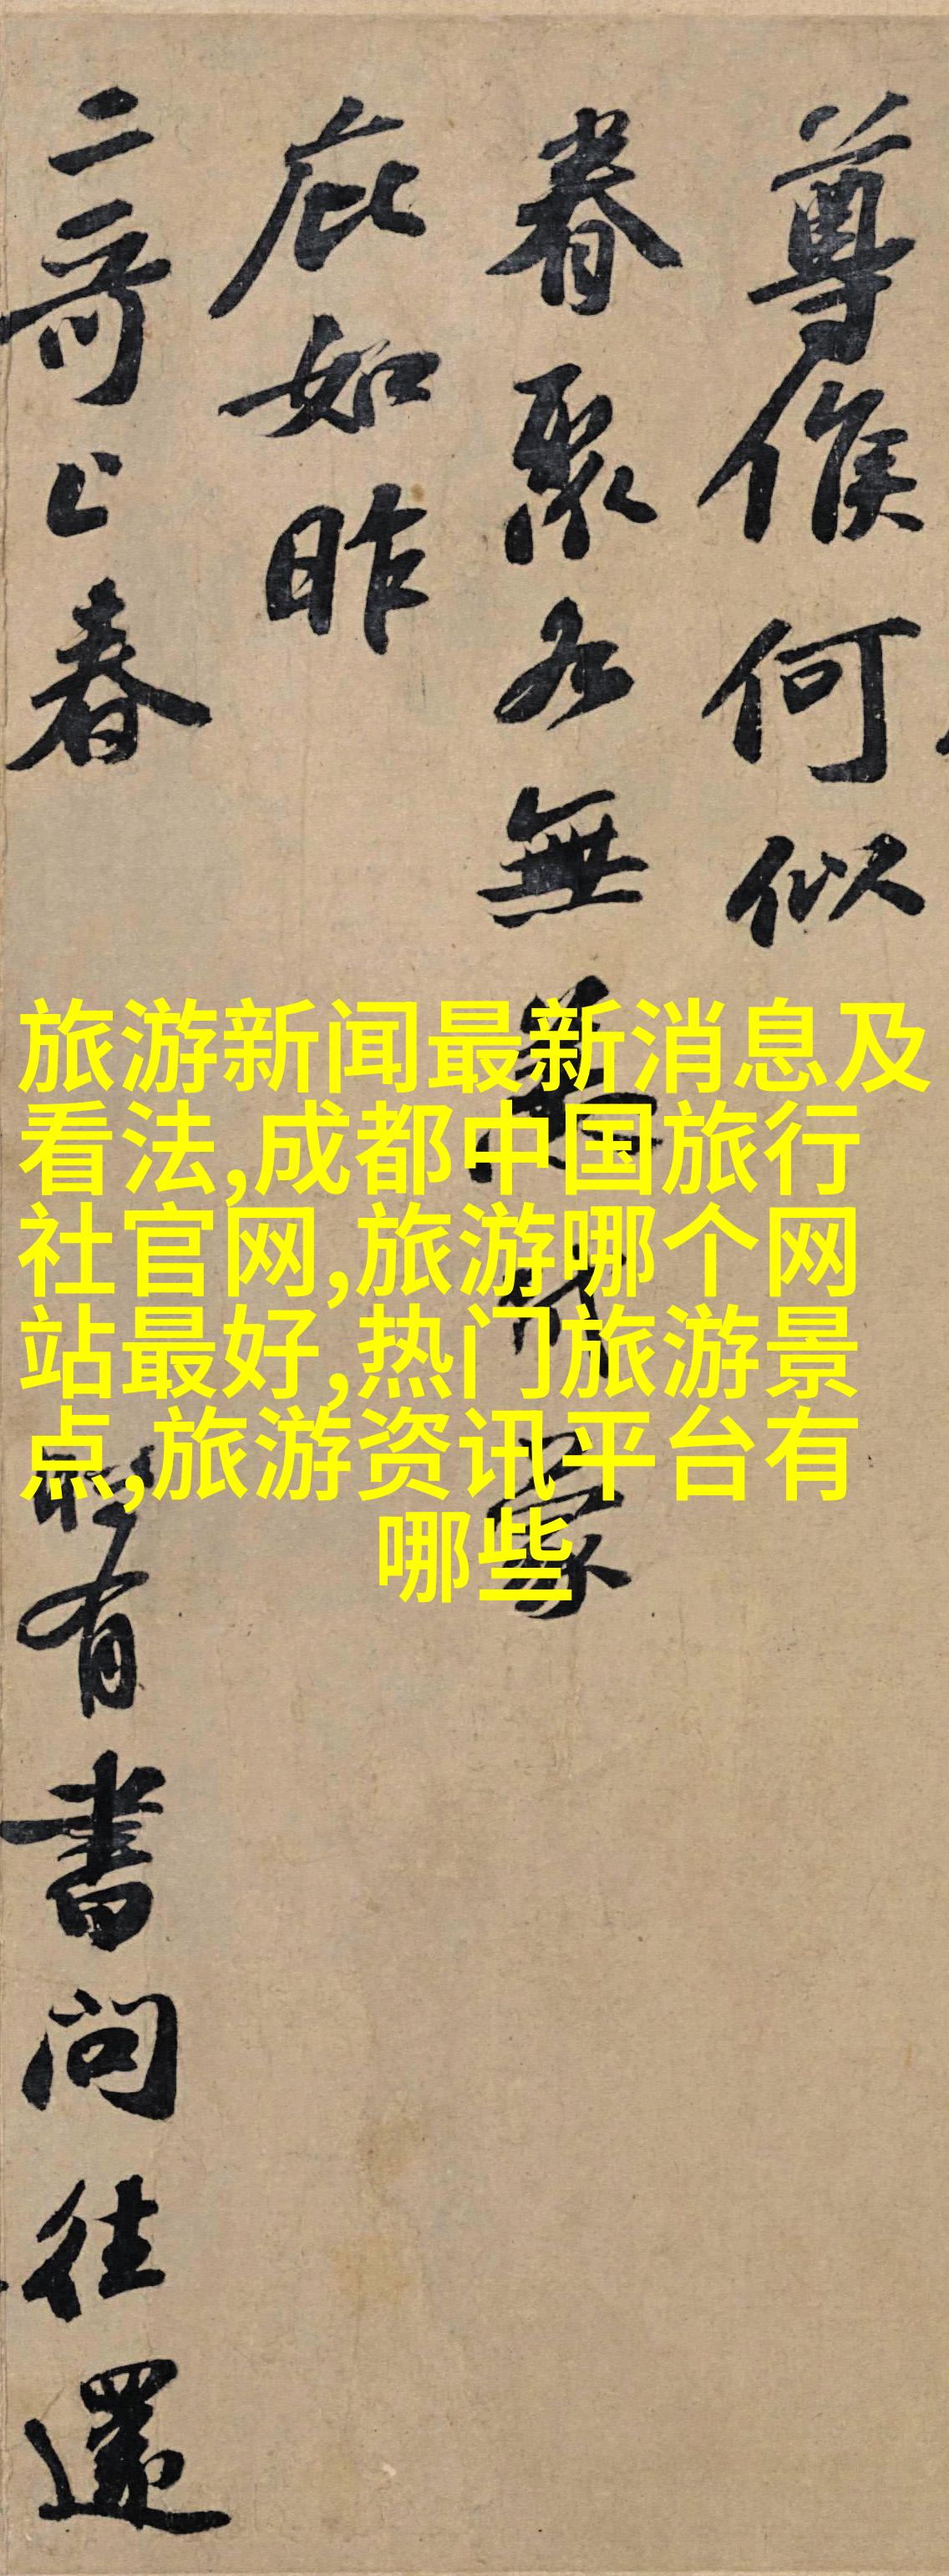 尊候何似
眷聚各無恙
蒙
庇如昨
二哥上春
有書問往還
旅游新闻最新消息及
看法,成都中国旅行
社官网,旅游哪个网
站最好,热门旅游景
点,旅游资讯平台有
哪些